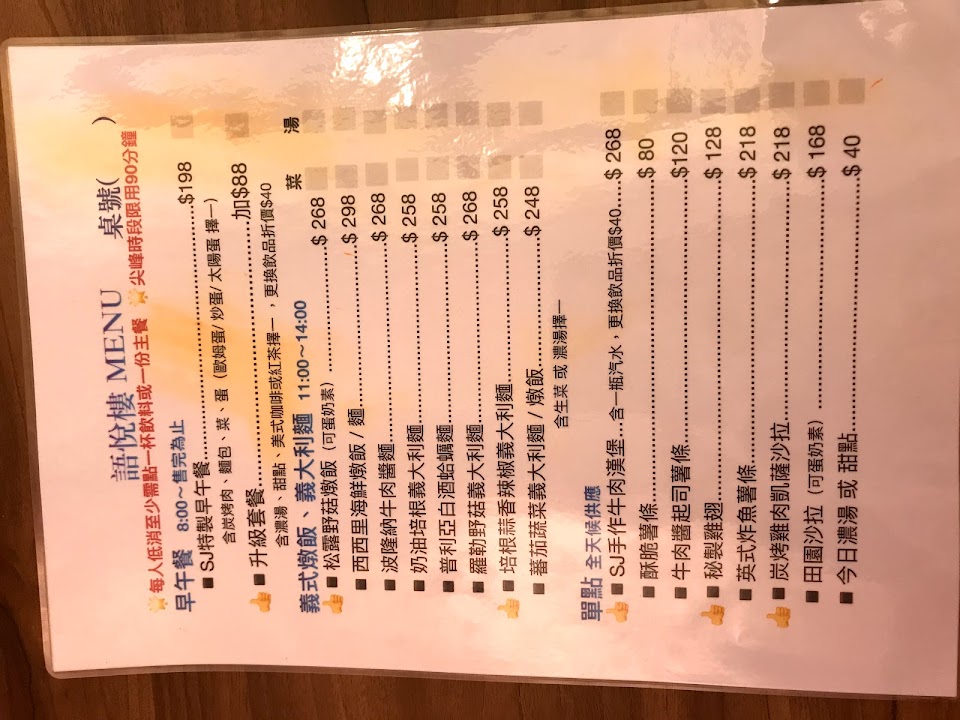 語悅樓 MENU 桌號( )
每人低消至少需點一杯飲料或一份主餐 尖峰時段限用90分鐘
早午餐 8:00～售完為止
SJ特製早午餐 $198
含炭烤肉、麵包、菜、蛋（歐姆蛋/ 炒蛋/ 太陽蛋 擇一）
升級套餐 加$88
含濃湯、甜點、美式咖啡或紅茶擇一，更換飲品折價$40
義式燉飯、義大利麵 11:00～14:00 菜 湯
松露野菇燉飯（可蛋奶素） $ 268
西西里海鮮燉飯 / 麵 $ 298
波隆納牛肉醬麵 $ 268
奶油培根義大利麵 $ 258
普利亞白酒蛤蠣麵 $ 258
羅勒野菇義大利麵 $ 268
培根蒜香辣椒義大利麵 $ 258
蕃茄蔬菜義大利麵 / 燉飯 $ 248
含生菜 或 濃湯擇一
單點 全天候供應
SJ手作牛肉漢堡…含一瓶汽水，更換飲品折價$40 $ 268
酥脆薯條 $ 80
牛肉醬起司薯條 $120
秘製雞翅 $ 128
英式炸魚薯條 $ 218
炭烤雞肉凱薩沙拉 $ 218
田園沙拉（可蛋奶素） $ 168
今日濃湯 或 甜點 $ 40